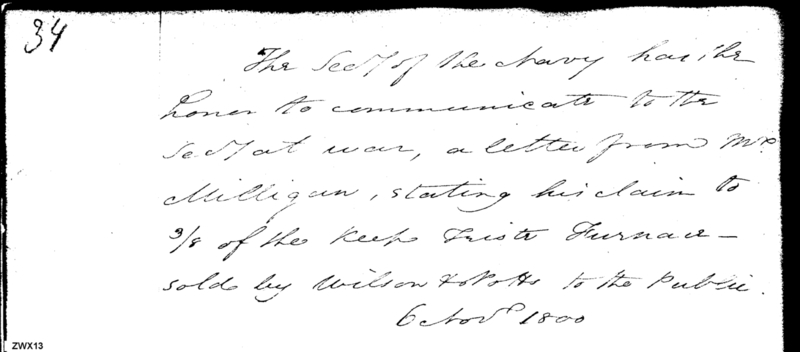 34
The Secy of the Navy has the
honor to communicate to the
Secy at war, a letter from Mr
Milligan, stating his claim to
3/8 of the Keep Triste Furnace –
sold by Wilson & Potts to the Public.
6 Novr 1800
ZWX13